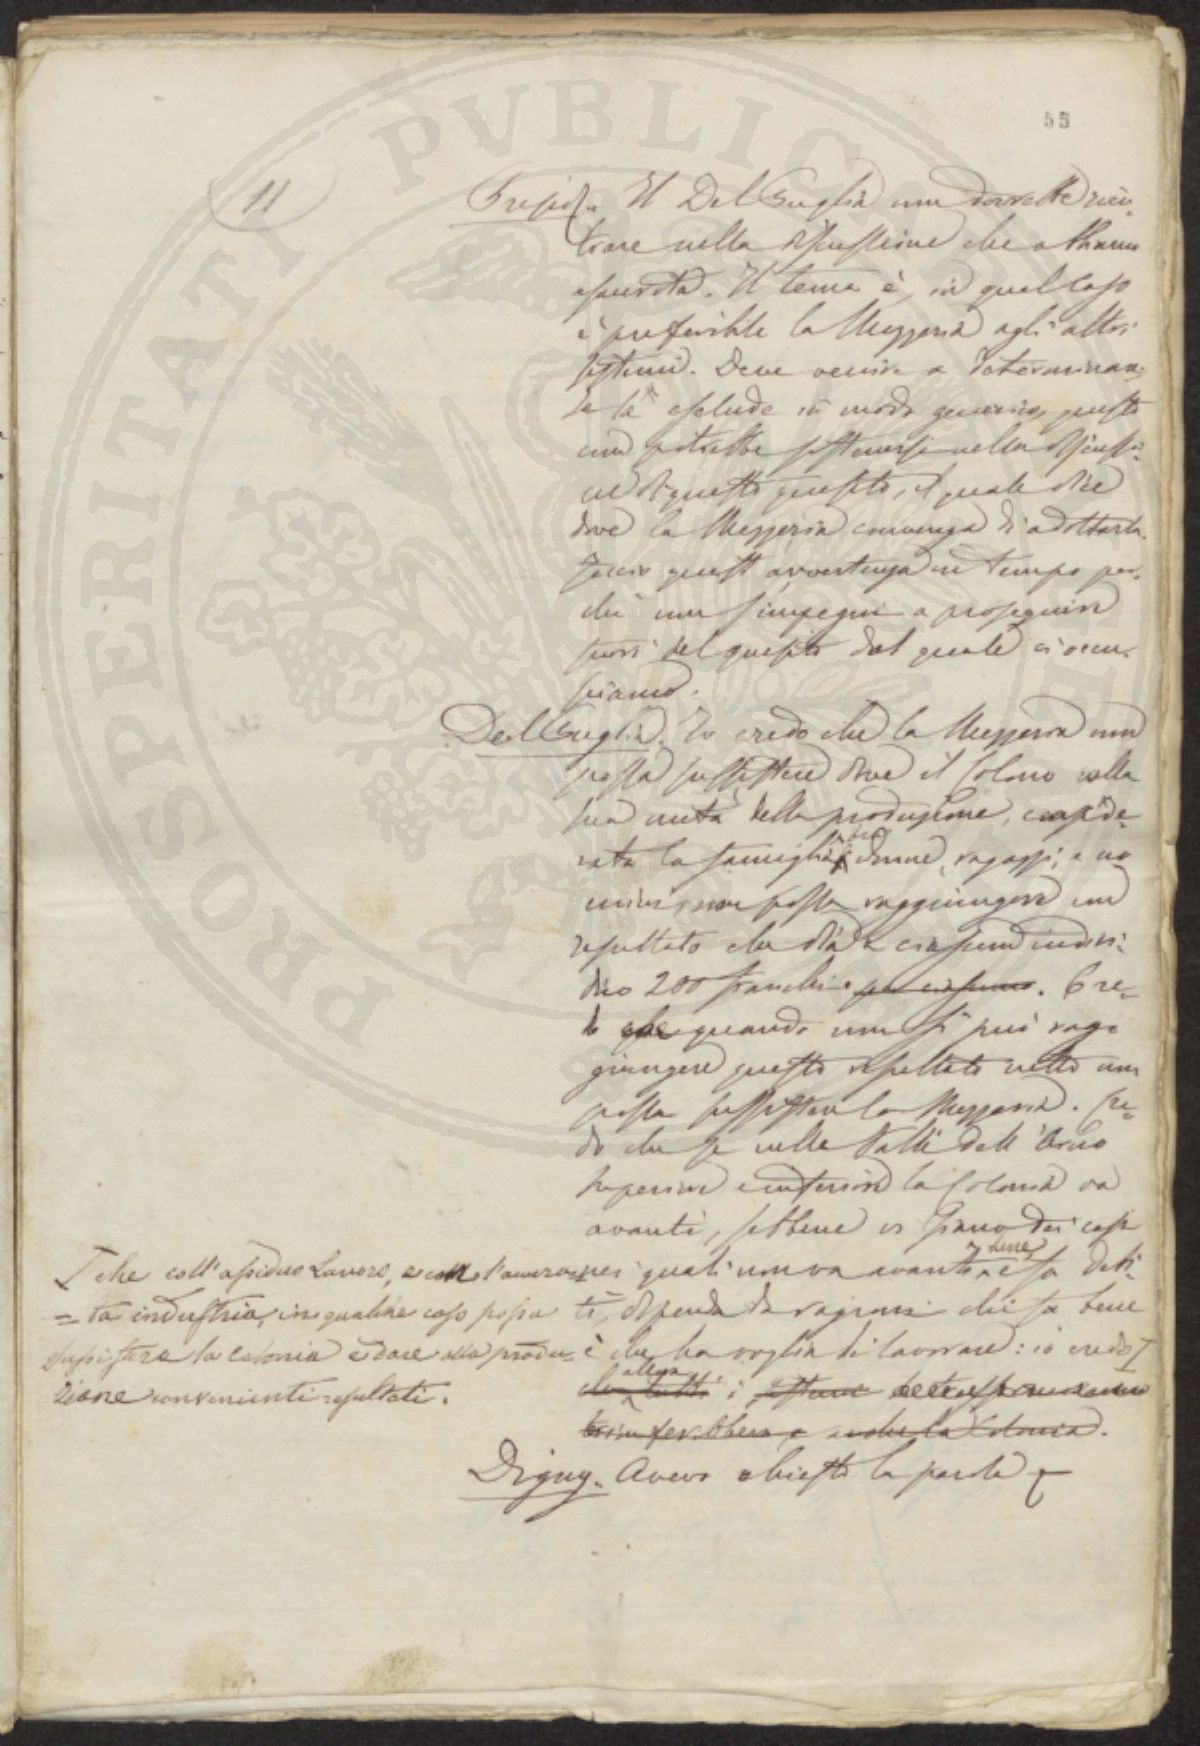 55
11
Presid. Il Del Puglia non dovrebbe rien-
trare nella discussione che abbiamo
esaurita. Il tema è, in qual caso
è preferibile la Mezzeria agli altri
sistemi. Deve venire a determinare;
se la esclude in modo generico, questo
non potrebbe sostenersi nella discussio-
ne di questo quesito, il quale dice
dove la Mezzeria convenga di adottarla.
Faccio quest'avvertenza in tempo per-
chè non s'impegni a proseguire
fuori del quesito del quale ci occu-
piamo.
Del Puglia. Io credo che la Mezzeria non
possa sussistere dove il Colono colla
sua metà della produzione, conside-
rata la famiglia donne, ragazzi, e uo
mini, non possa raggiungere un
resultato che dia a ciascun indivi-
duo 200 franchi per ciascuno. Cre-
do che quando non si può rag-
giungere questo resultato netto non
possa sussistere la Mezzeria. Cre-
do che se nelle Valli dell'Arno
superiore e inferiore la Colonia va
avanti, sebbene vi siano dei casi
nei quali non va avanti bene, e fa debi-
ti, dipenda da ragioni che sa bene
è che ha voglia di lavorare: io credo
che tutti allora i sistemi
anche la Colonia.
Digny. Avevo chiesto la parola
che coll'assiduo Lavoro, e con l'accura-
ta industria, in qualche caso possa
sussistere la colonia e dare alla produ-
zione convenienti resultati.
PROSPERITATI PVBLICAE